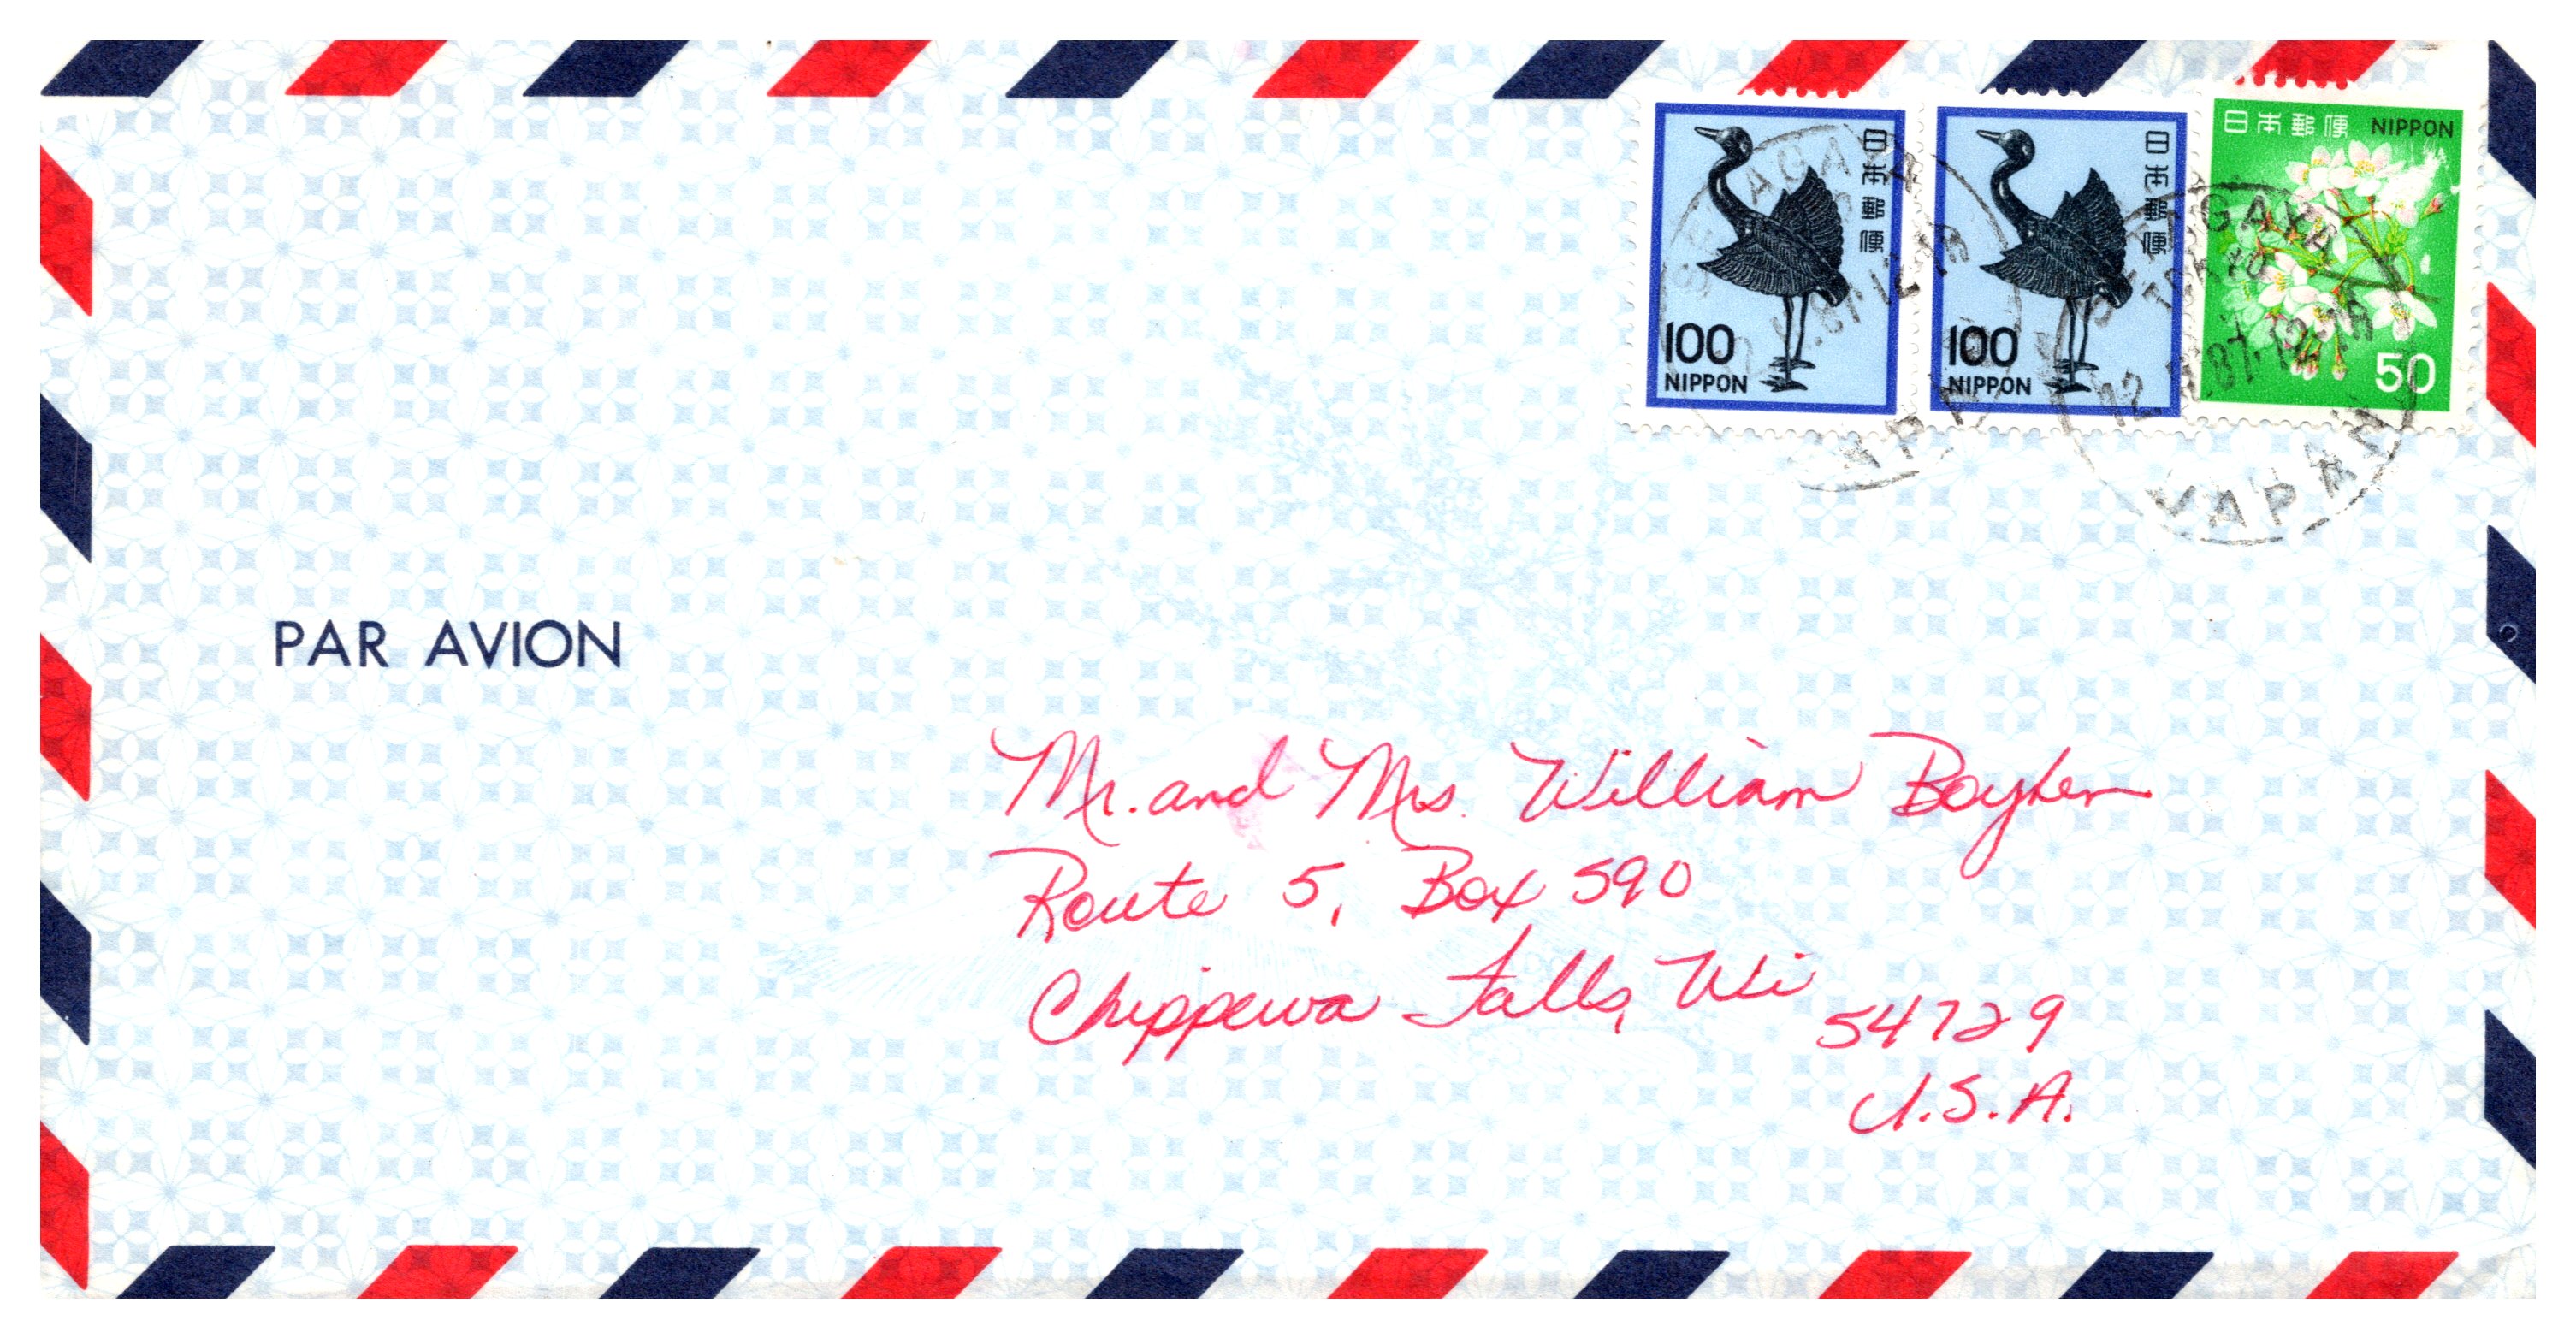 日本郵便
100
NIPPON
日本郵便
100
NIPPON
日本郵便 NIPPON
50
JAPAN
PAR AVION
Mr. and Mrs. William Boyken
Route 5, Box 590
Chippewa Falls, Wi
54729
U.S.A.